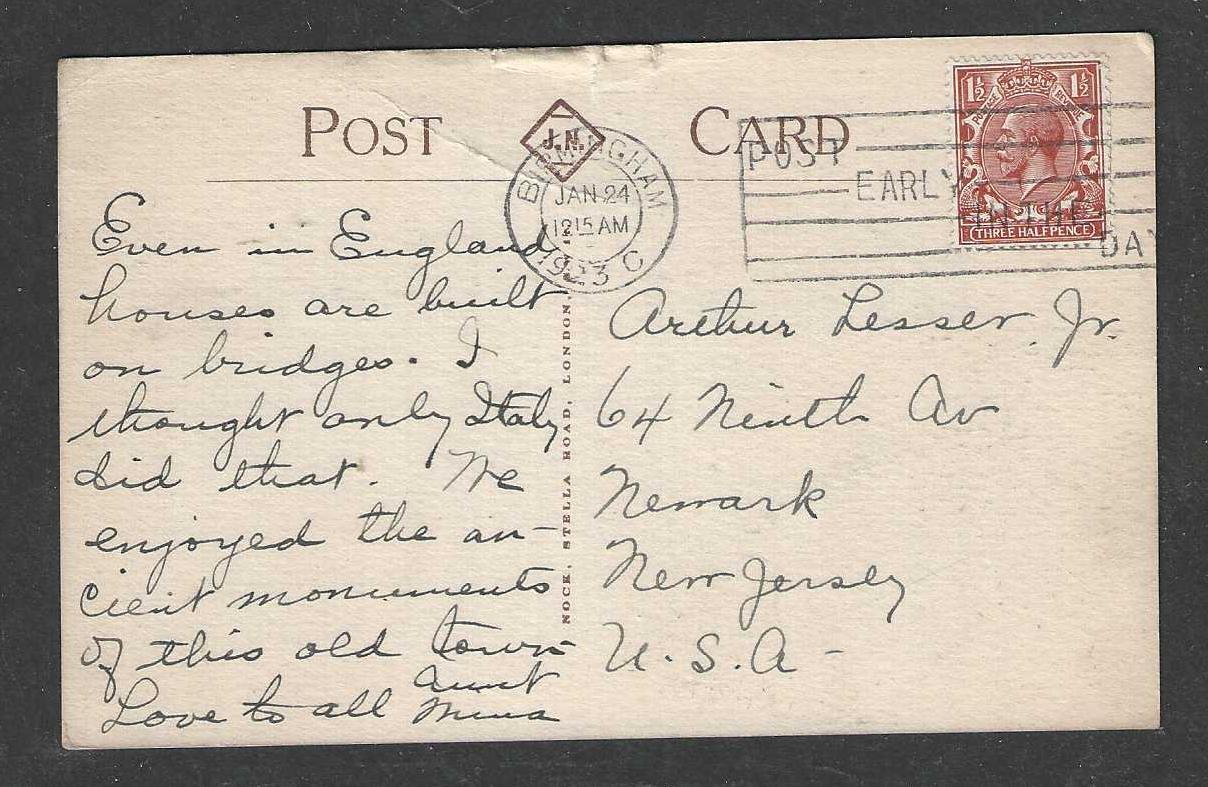 POST CARD
J.N.
BIRMINGHAM
JAN 24
12 15 AM
1923 C
POST
EARLY
IN THE
DAY
1½ 1½
POSTAGE REVENUE
THREE HALFPENCE
Even in England
houses are built
on bridges. I
thought only Italy
did that. We
enjoyed the an-
cient monuments
of this old town
Love to all Aunt
Mina
NOCK, STELLA ROAD, LONDON.
Arthur Lesser Jr.
64 Ninth Av
Newark
New Jersey
U.S.A-